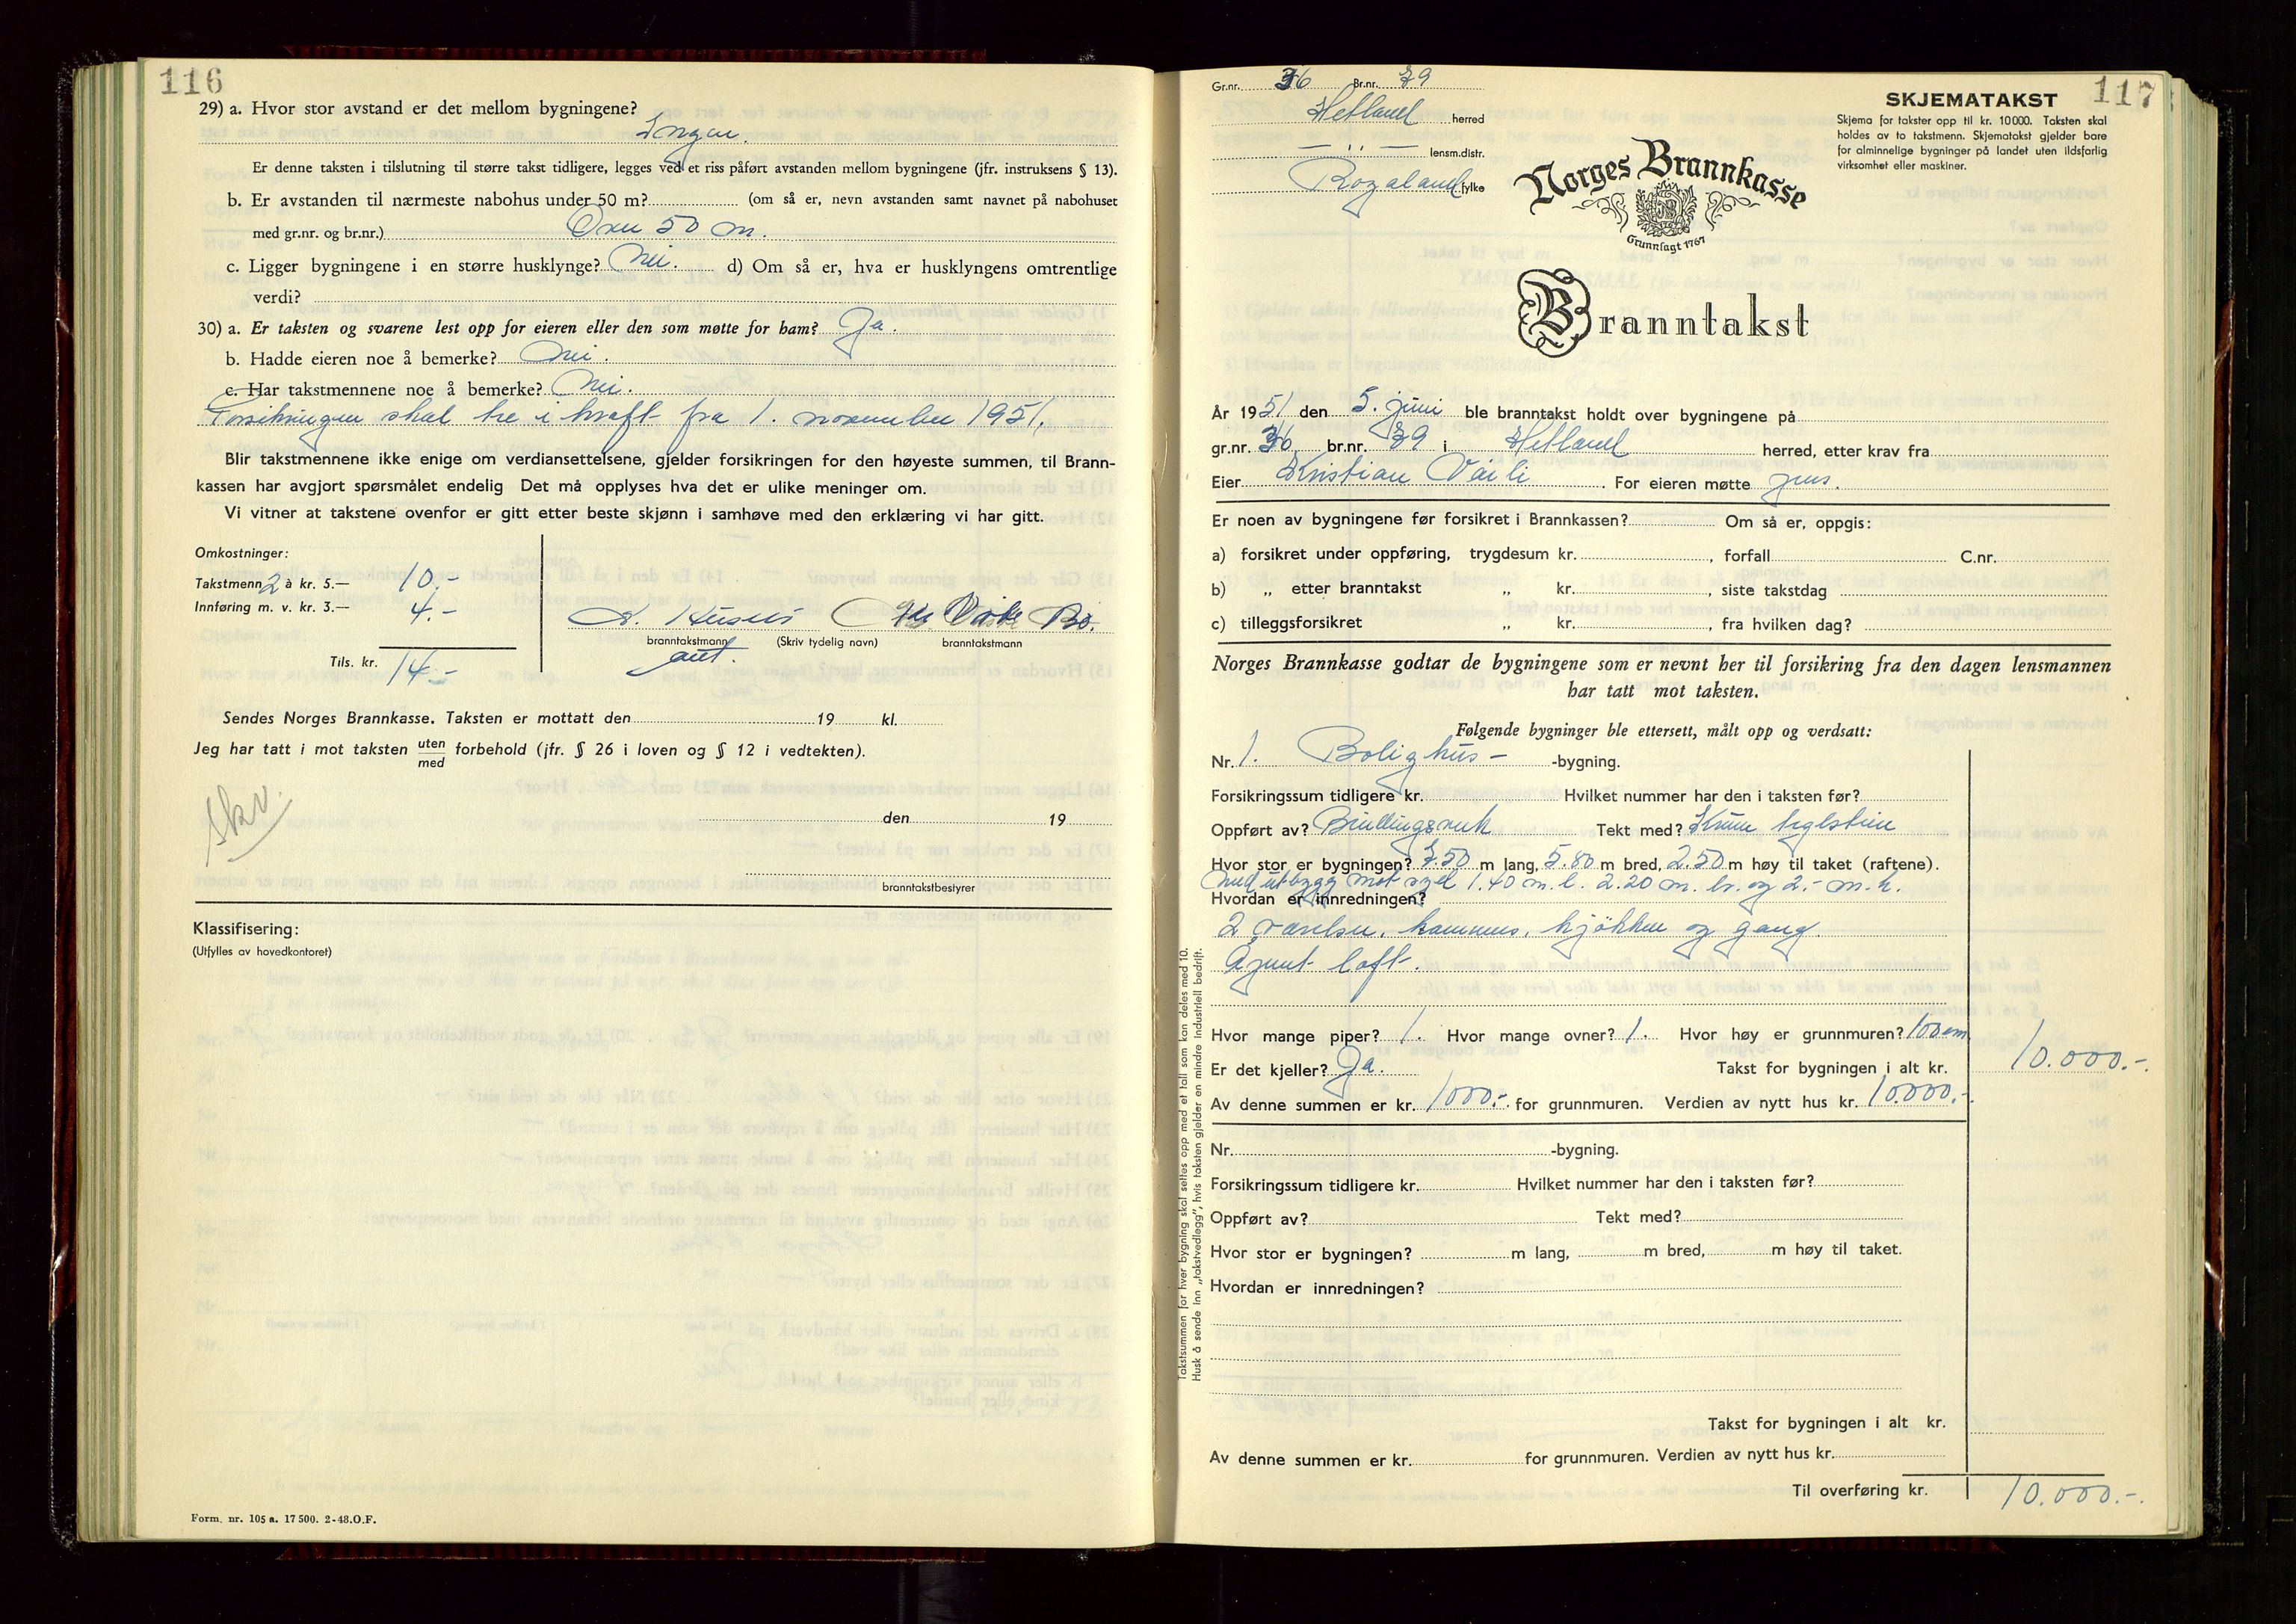 116
29) a. Hvor stor avstand er det mellom bygningene?
Ingen.
Er denne taksten i tilslutning til større takst tidligere, legges ved et riss påført avstanden mellom bygningene (jfr. instruksens § 13).
b. Er avstanden til nærmeste nabohus under 50 m? (om så er, nevn avstanden samt navnet på nabohuset
med gr.nr. og br.nr.) Over 50 m.
c. Ligger bygningene i en større husklynge? Nei. d) Om så er, hva er husklyngens omtrentlige
verdi?
30) a. Er taksten og svarene lest opp for eieren eller den som møtte for ham? Ja.
b. Hadde eieren noe å bemerke? Nei.
c. Har takstmennene noe å bemerke? Nei.
Forsikringen skal tre i kraft fra 1. november 1951.
Blir takstmennene ikke enige om verdiansettelsene, gjelder forsikringen for den høyeste summen, til Brann-
kassen har avgjort spørsmålet endelig Det må opplyses hva det er ulike meninger om.
Vi vitner at takstene ovenfor er gitt etter beste skjønn i samhøve med den erklæring vi har gitt.
Omkostninger:
Takstmenn 2 à kr. 5.— 10.-
Innføring m. v. kr. 3.— 4.-
Tils. kr. 14.-
branntakstmann (Skriv tydelig navn) branntakstmann
Sendes Norges Brannkasse. Taksten er mottatt den 19 kl.
Jeg har tatt i mot taksten uten/med forbehold (jfr. § 26 i loven og § 12 i vedtekten).
skv.
den 19
branntakstbestyrer
Klassifisering:
(Utfylles av hovedkontoret)
Form. nr. 105 a. 17 500. 2-48.O.F.
117
Gr.nr. 36 Br.nr. 79
Hetland herred
— „ — lensm.distr.
Rogaland fylke
SKJEMATAKST
Skjema for takster opp til kr. 10000. Taksten skal
holdes av to takstmenn. Skjematakst gjelder bare
for alminnelige bygninger på landet uten ildsfarlig
virksomhet eller maskiner.
Norges Brannkasse
Grunnlagt 1767
Branntakst
År 1951 den 5. juni ble branntakst holdt over bygningene på
gr.nr. 36 br.nr. 79 i Hetland herred, etter krav fra
Eier Kristian For eieren møtte
Er noen av bygningene før forsikret i Brannkassen? Om så er, oppgis:
a) forsikret under oppføring, trygdesum kr. , forfall C.nr.
b) „ etter branntakst „ kr. , siste takstdag
c) tilleggsforsikret „ kr. , fra hvilken dag?
Norges Brannkasse godtar de bygningene som er nevnt her til forsikring fra den dagen lensmannen
har tatt mot taksten.
Følgende bygninger ble ettersett, målt opp og verdsatt:
Nr. 1. Bolighus- -bygning.
Forsikringssum tidligere kr. Hvilket nummer har den i taksten før?
Oppført av? Bindingsverk Tekt med? Krum teglstein
Hvor stor er bygningen? 7.50 m lang, 5.80 m bred, 2.50 m høy til taket (raftene).
med utbygg mot syd 1.40 m. l. 2.20 m. br. og 2.- m. h.
Hvordan er innredningen?
2 værelser, kammers, kjökken og gang.
Åpent loft.
Hvor mange piper? 1. Hvor mange ovner? 1. Hvor høy er grunnmuren? 100 cm
Er det kjeller? Ja. Takst for bygningen i alt kr. 10.000.-
Av denne summen er kr. 1000.- for grunnmuren. Verdien av nytt hus kr. 10.000.-
Nr. -bygning.
Forsikringssum tidligere kr. Hvilket nummer har den i taksten før?
Oppført av? Tekt med?
Hvor stor er bygningen? m lang, m bred, m høy til taket.
Hvordan er innredningen?
Takst for bygningen i alt kr.
Av denne summen er kr. for grunnmuren. Verdien av nytt hus kr.
Til overføring kr. 10.000.-
Takstsummen for hver bygning skal settes opp med et tall som kan deles med 10.
Husk å sende inn „takstvedlegg", hvis taksten gjelder en mindre industriell bedrift.